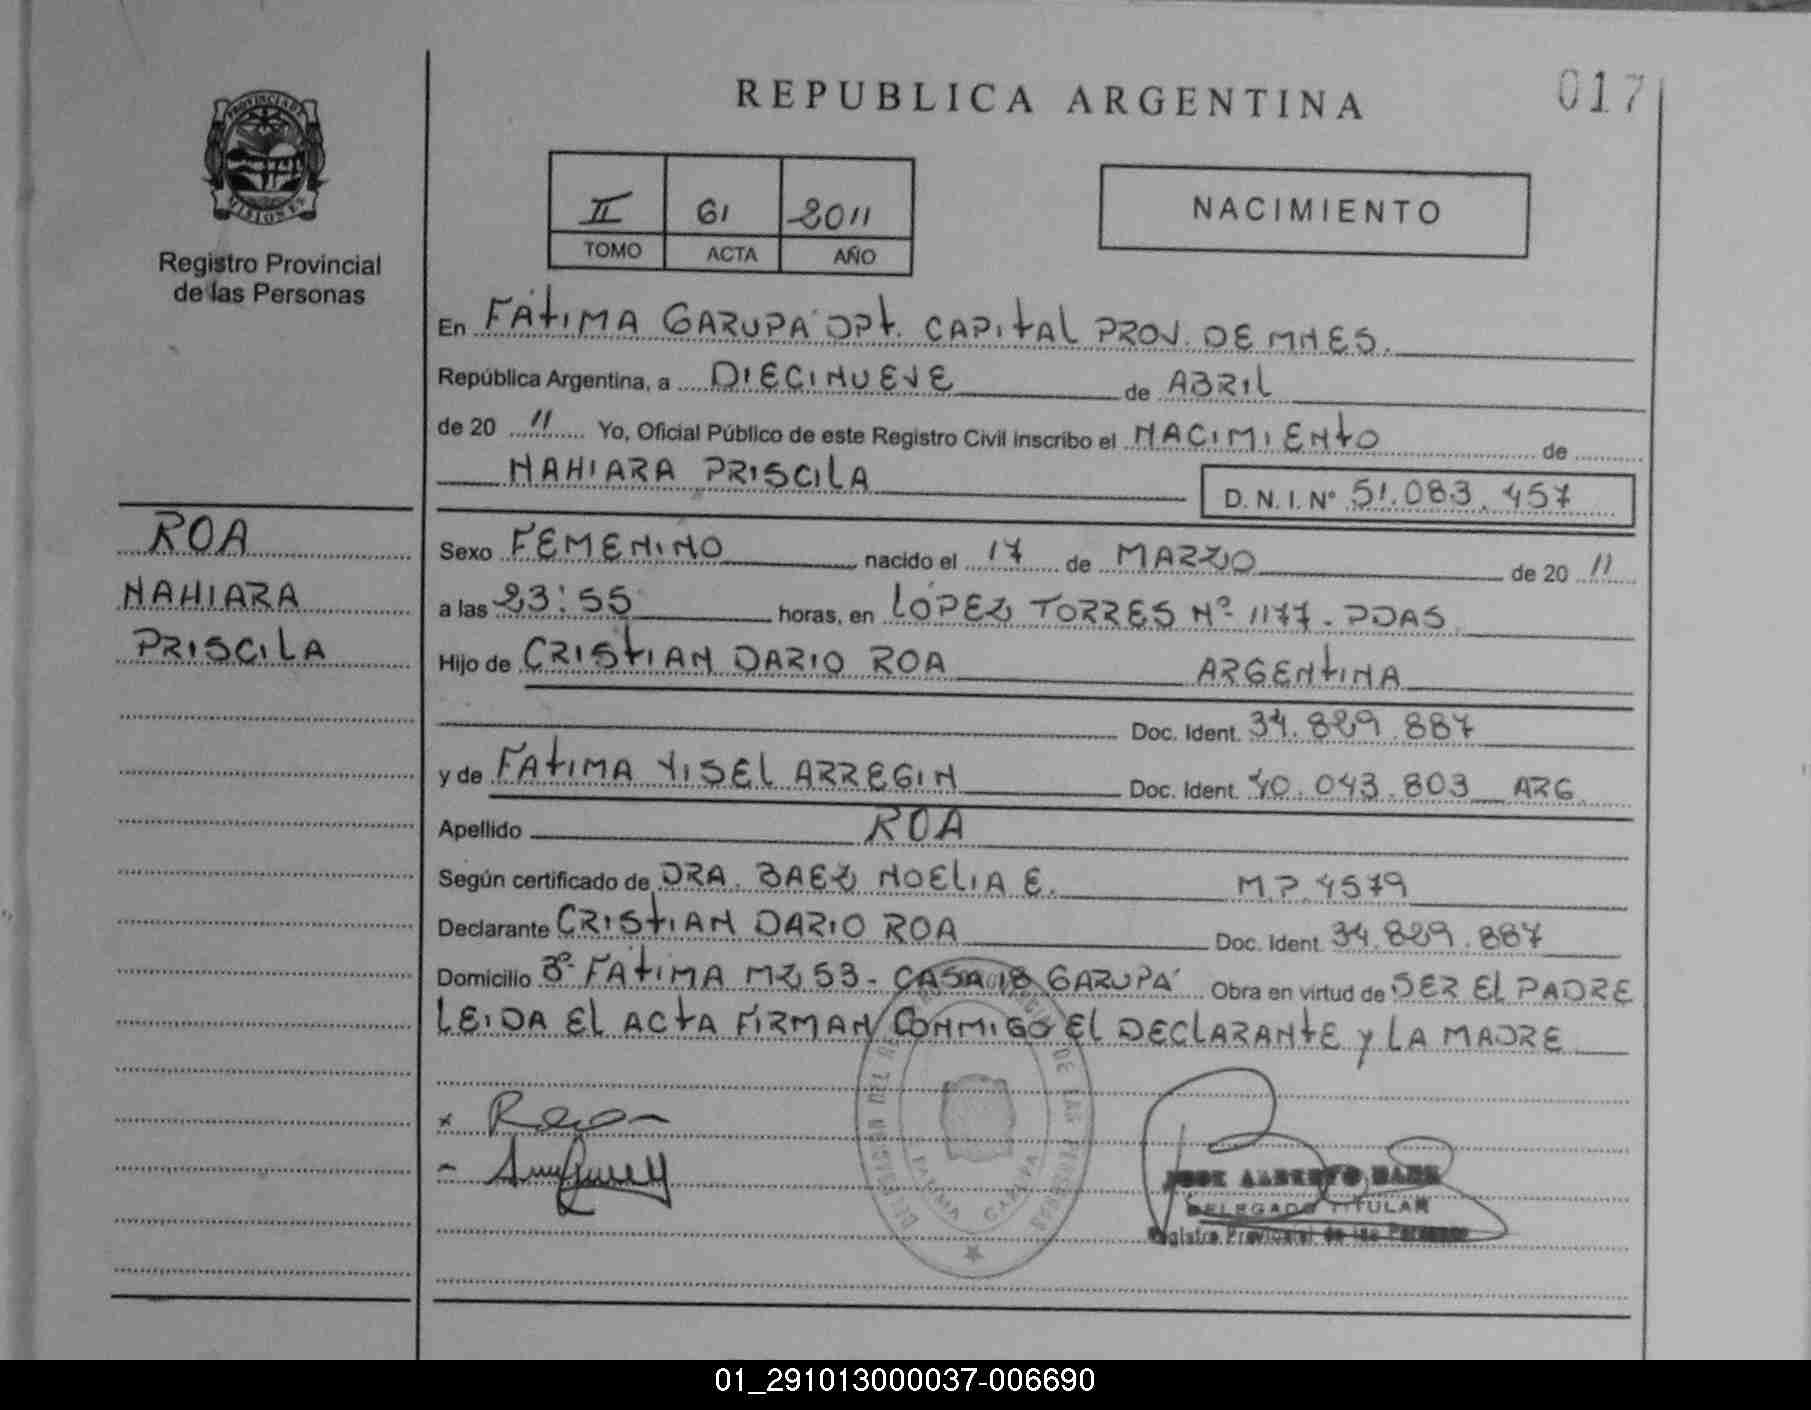 REPUBLICA ARGENTINA
017
PROVINCIA DE
MISIONES
Registro Provincial
de las Personas
II 61 2011
TOMO ACTA AÑO
NACIMIENTO
En FÁTIMA GARUPÁ DPT. CAPITAL PROV. DE MNES.
República Argentina, a DIECINUEVE de ABRIL
de 20 11 Yo, Oficial Público de este Registro Civil inscribo el NACIMIENTO de
NAHIARA PRISCILA D. N. I. Nº 51.083.457
ROA
NAHIARA
PRISCILA
Sexo FEMENINO nacido el 17 de MARZO de 20 11
a las 23:55 horas, en LÓPEZ TORRES Nº 1177. PDAS.
Hijo de CRISTIAN DARIO ROA ARGENTINA
Doc. Ident. 34.829.887
y de FATIMA YISEL ARREGIN Doc. Ident. 40.043.803 ARG.
Apellido ROA
Según certificado de DRA. BAEZ NOELIA E. M.P. 4579
Declarante CRISTIAN DARIO ROA Doc. Ident. 34.829.887
Domicilio Bº FÁTIMA MZ 53 - CASA 18 GARUPÁ Obra en virtud de SER EL PADRE
LEIDA EL ACTA FIRMAN CONMIGO EL DECLARANTE y LA MADRE
DE LAS PERSONAS
FATIMA GARUPA
JOSE ALBERTO
DELEGADO TITULAR
Registro Provincial de las Personas
01_291013000037-006690